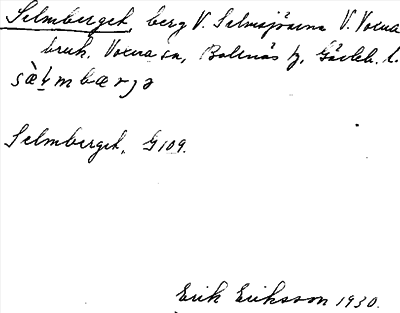 Selmberget, berg V. Selmsjöarna V. Voxna
bruk. Voxna sn, Bollnäs tg, Gävleb. l.
sæ̀ɫmbærjə
Selmberget, G109.
Erik Eriksson 1930.